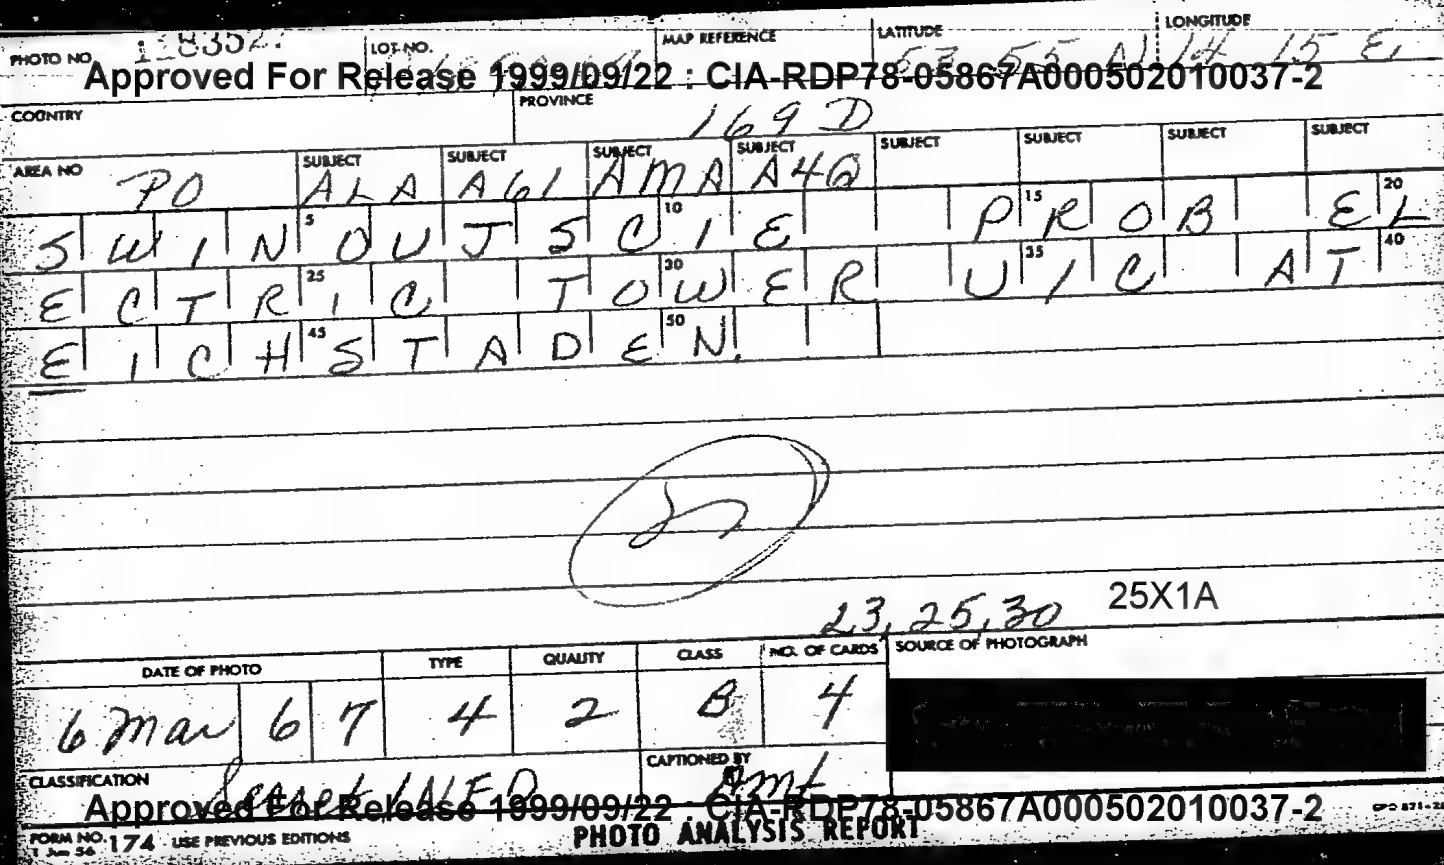 PHOTO NO. 118352. LOT NO. MAP REFERENCE LATITUDE 53 55 N LONGITUDE 14 15 E
Approved For Release 1999/09/22 : CIA-RDP78-05867A000502010037-2
COUNTRY PROVINCE 169 D
AREA NO PO SUBJECT ALA SUBJECT A61 SUBJECT AMA SUBJECT A4Q SUBJECT SUBJECT SUBJECT SUBJECT
SWINOUJSCIE PROB EL
ECTRIC TOWER UIC AT
EICHSTADEN.
5 10 15 20
25 30 35 40
45 50
23, 25, 30 25X1A
DATE OF PHOTO TYPE QUALITY CLASS NO. OF CARDS SOURCE OF PHOTOGRAPH
6 Mar 67 4 2 B 4
CLASSIFICATION Secret NFD CAPTIONED BY
Approved For Release 1999/09/22 : CIA-RDP78-05867A000502010037-2
FORM NO. 174 USE PREVIOUS EDITIONS PHOTO ANALYSIS REPORT
1 Jun 56